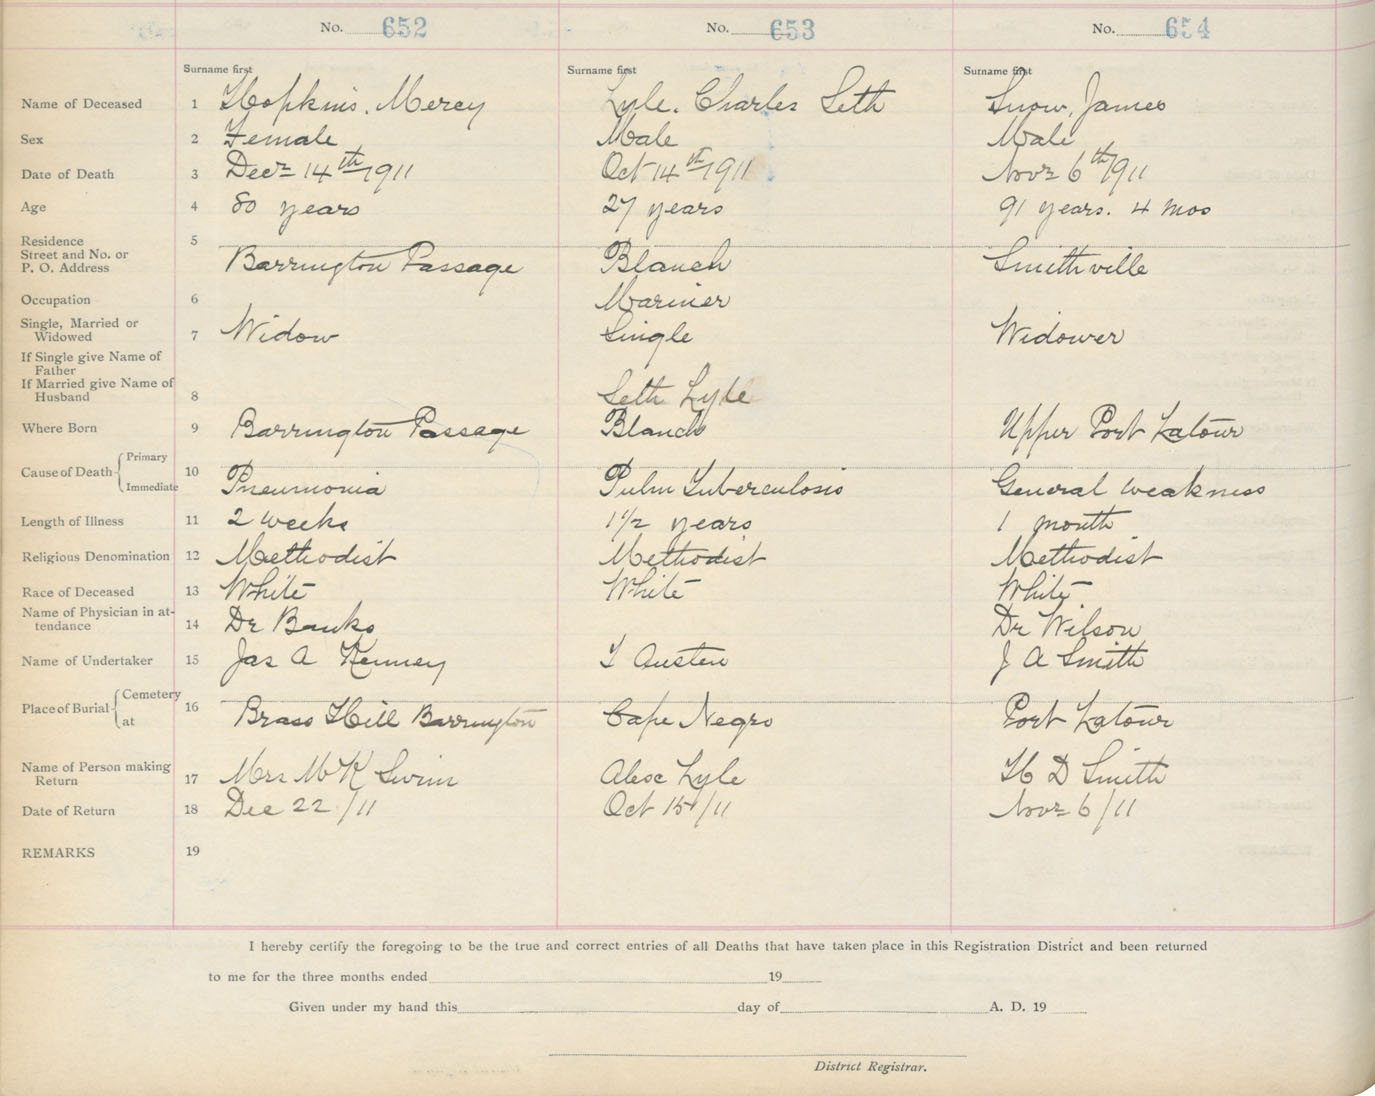 No. 652 No. 653 No. 654
Surname first Surname first Surname first
Name of Deceased 1 Hopkins, Mercy Lyle, Charles Seth Snow, James
Sex 2 Female Male Male
Date of Death 3 Decr 14th 1911 Oct 14th 1911 Novr 6th 1911
Age 4 80 years 27 years 91 years. 4 mos
Residence 5
Street and No. or
P. O. Address Barrington Passage Blanch Smithville
Occupation 6 Mariner
Single, Married or
Widowed 7 Widow Single Widower
If Single give Name of
Father
If Married give Name of
Husband 8 Seth Lyle
Where Born 9 Barrington Passage Blanch Upper Port Latour
Primary
Cause of Death 10
Immediate Pneumonia Pulm Tuberculosis General weakness
Length of Illness 11 2 weeks 1 1/2 years 1 month
Religious Denomination 12 Methodist Methodist Methodist
Race of Deceased 13 White White White
Name of Physician in at-
tendance 14 Dr Banks Dr Wilson
Name of Undertaker 15 Jas A Kenney T Austen J A Smith
Cemetery
Place of Burial 16
at Brass Hill Barrington Cape Negro Port Latour
Name of Person making
Return 17 Mrs McK Swim Alex Lyle H D Smith
Date of Return 18 Dec 22 /11 Oct 15/11 Novr 6/11
REMARKS 19
I hereby certify the foregoing to be the true and correct entries of all Deaths that have taken place in this Registration District and been returned
to me for the three months ended 19
Given under my hand this day of A. D. 19
District Registrar.